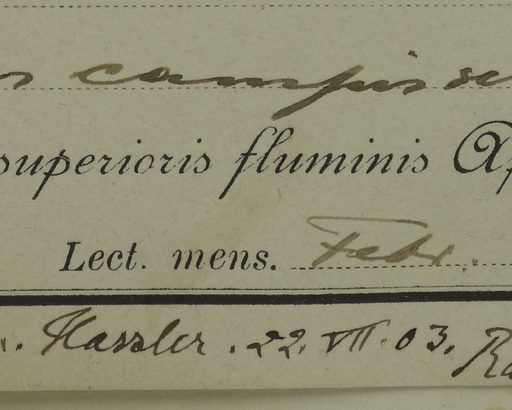 campis
superioris fluminis
Lect. mens. Febr.
Hassler. 22. VII. 03.